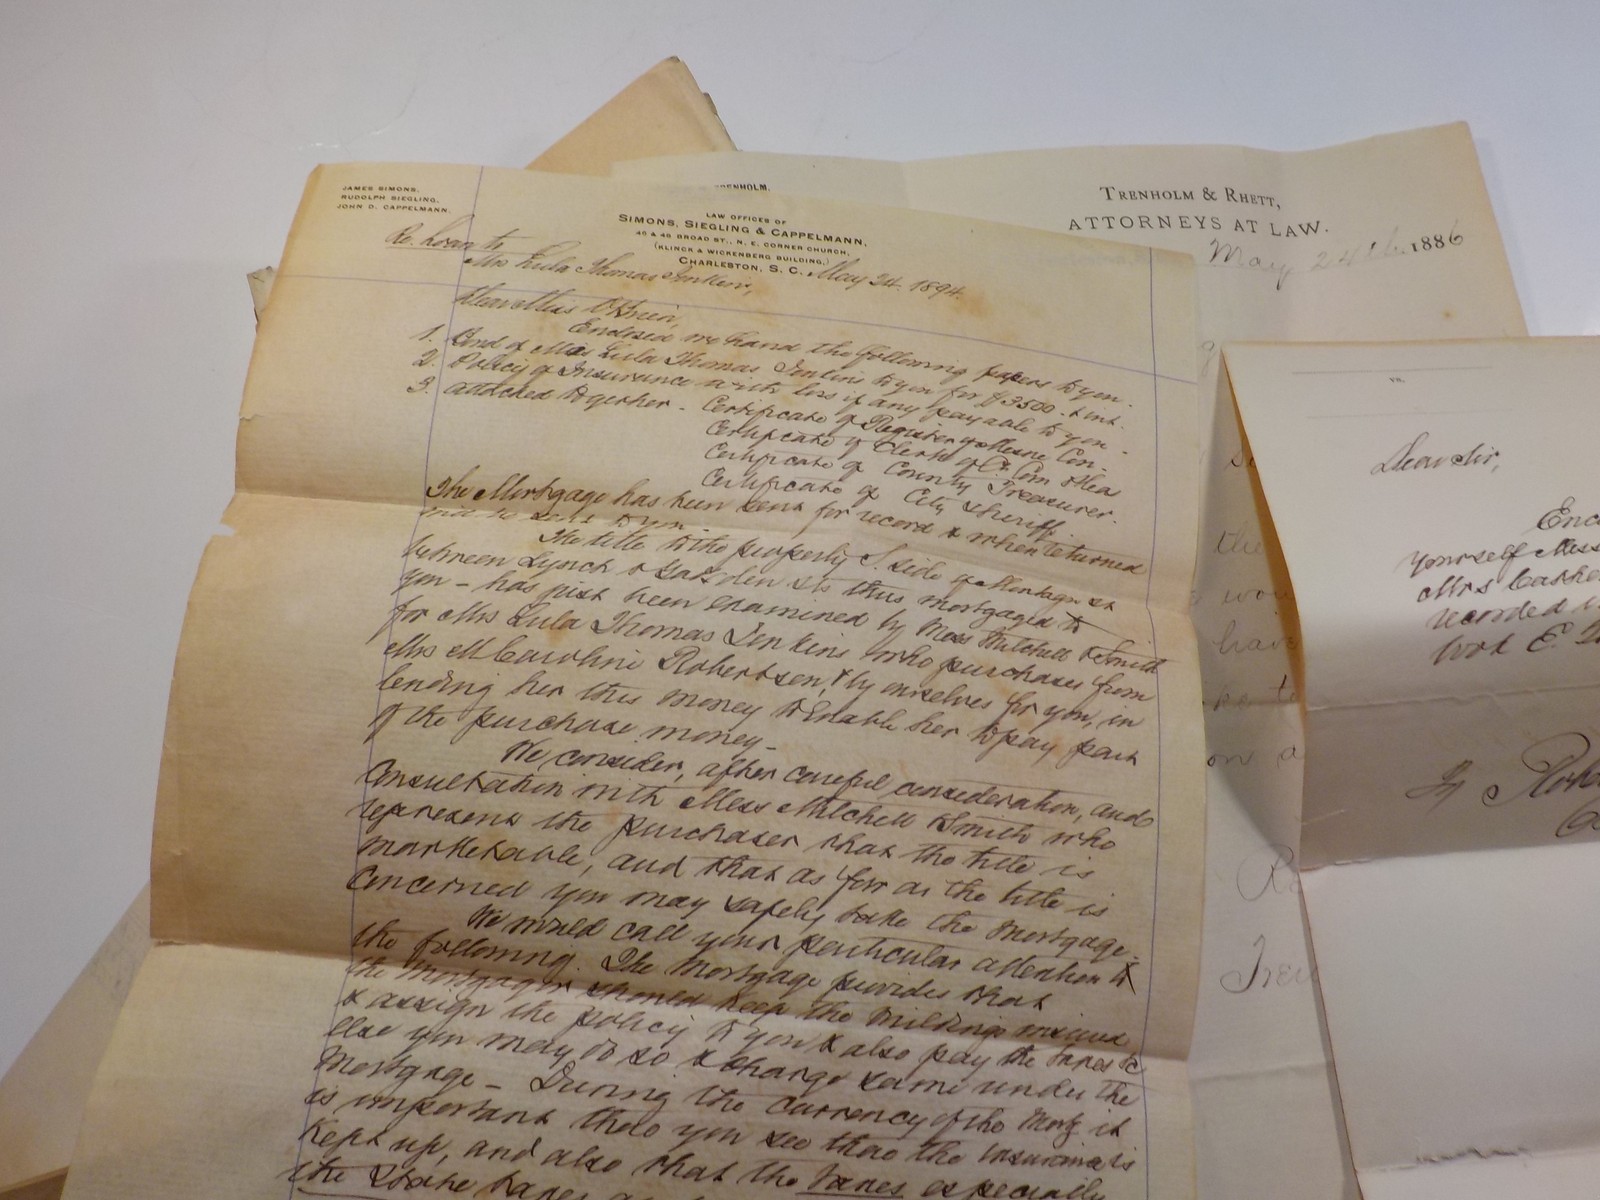 JAMES SIMONS.
RUDOLPH SIEGLING.
JOHN D. CAPPELMANN.
LAW OFFICES OF
SIMONS, SIEGLING & CAPPELMANN,
46 & 48 BROAD ST., N. E. CORNER CHURCH,
(KLINCK & WICKENBERG BUILDING,)
CHARLESTON, S. C. May 24. 1894.
Re. Loan to
Mrs Lula Thomas Jenkins,
Dear Miss O'Brien,
Enclosed we hand the following papers to you.
1. Bond of Mrs Lula Thomas Jenkins to you for $3500. & int.
2. Policy of Insurance with loss if any payable to you.
3. attached together - Certificate of Register of Mesne Con-
Certificate of Clerk of Ct. Com Pleas
Certificate of County Treasurer.
Certificate of City Sheriff.
The Mortgage has been sent for record & when returned
will be sent to you.
The title to the property S. side of Montagu st
between Lynch & Gadsden sts thus mortgaged to
you - has just been examined by Mess Mitchell & Smith
for Mrs Lula Thomas Jenkins who purchases from
Mrs M Caroline Robertson, & by ourselves for you, in
lending her this money to enable her to pay part
of the purchase money -
We consider, after careful consideration, and
consultation with Mess Mitchell & Smith who
represent the purchaser that the title is
marketable, and that as far as the title is
concerned you may safely take the Mortgage.
We would call your particular attention to
the following. The Mortgage provides that
the Mortgagor should keep the buildings insured
& assign the policy to you & also pay the taxes &c
else you may do so & charge same under the
Mortgage - During the currency of the Mortg it
is important that you see that the insurance is
kept up, and also that the taxes especially
the State taxes
TRENHOLM.
TRENHOLM & RHETT,
ATTORNEYS AT LAW.
May 24th. 1886
the
have
on a
vs.
Dear Sir,
Enc
yourself Mess
Mrs Cathe
recorded in